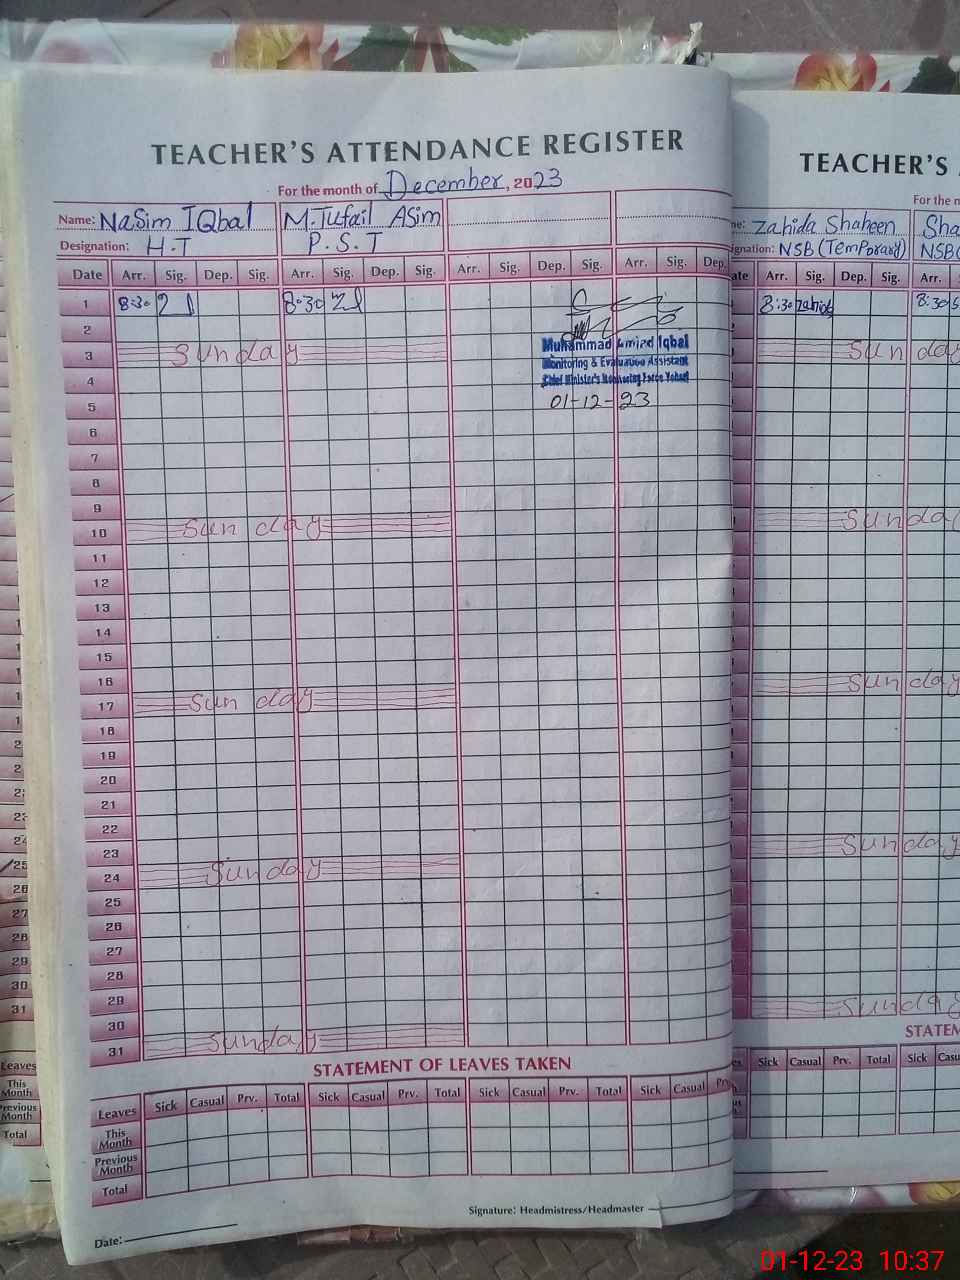 TEACHER'S ATTENDANCE REGISTER
For the month of December, 2023
Name: Nasim IQbal M.Tufail Asim
Designation: H.T P.S.T
Date Arr. Sig. Dep. Sig. Arr. Sig. Dep. Sig. Arr. Sig. Dep. Sig. Arr. Sig. Dep.
1 8:30 8:30
2
3 Sunday
Muhammad Iqbal
Monitoring & Evaluation Assistant
Chief Minister's Monitoring Force
4
5 01-12-23
6
7
8
9
10 Sunday
11
12
13
14
15
16
17 Sunday
18
19
20
21
22
23
24 Sunday
25
26
27
28
29
30
31 Sunday
STATEMENT OF LEAVES TAKEN
Leaves Sick Casual Prv. Total Sick Casual Prv. Total Sick Casual Prv. Total Sick Casual Prv.
This Month
Previous Month
Total
Signature: Headmistress/Headmaster
Date:
TEACHER'S
For the m
Zahida Shaheen Sha
NSB (Temporary) NSB(
Arr. Sig. Dep. Sig. Arr. S
8:30 Zahida 8:30
Sunday
Sunday
Sunday
Sunday
Sunday
STATEM
Sick Casual Prv. Total Sick Casu
25
26
27
28
29
30
31
Leaves
This Month
Previous Month
Total
01-12-23 10:37